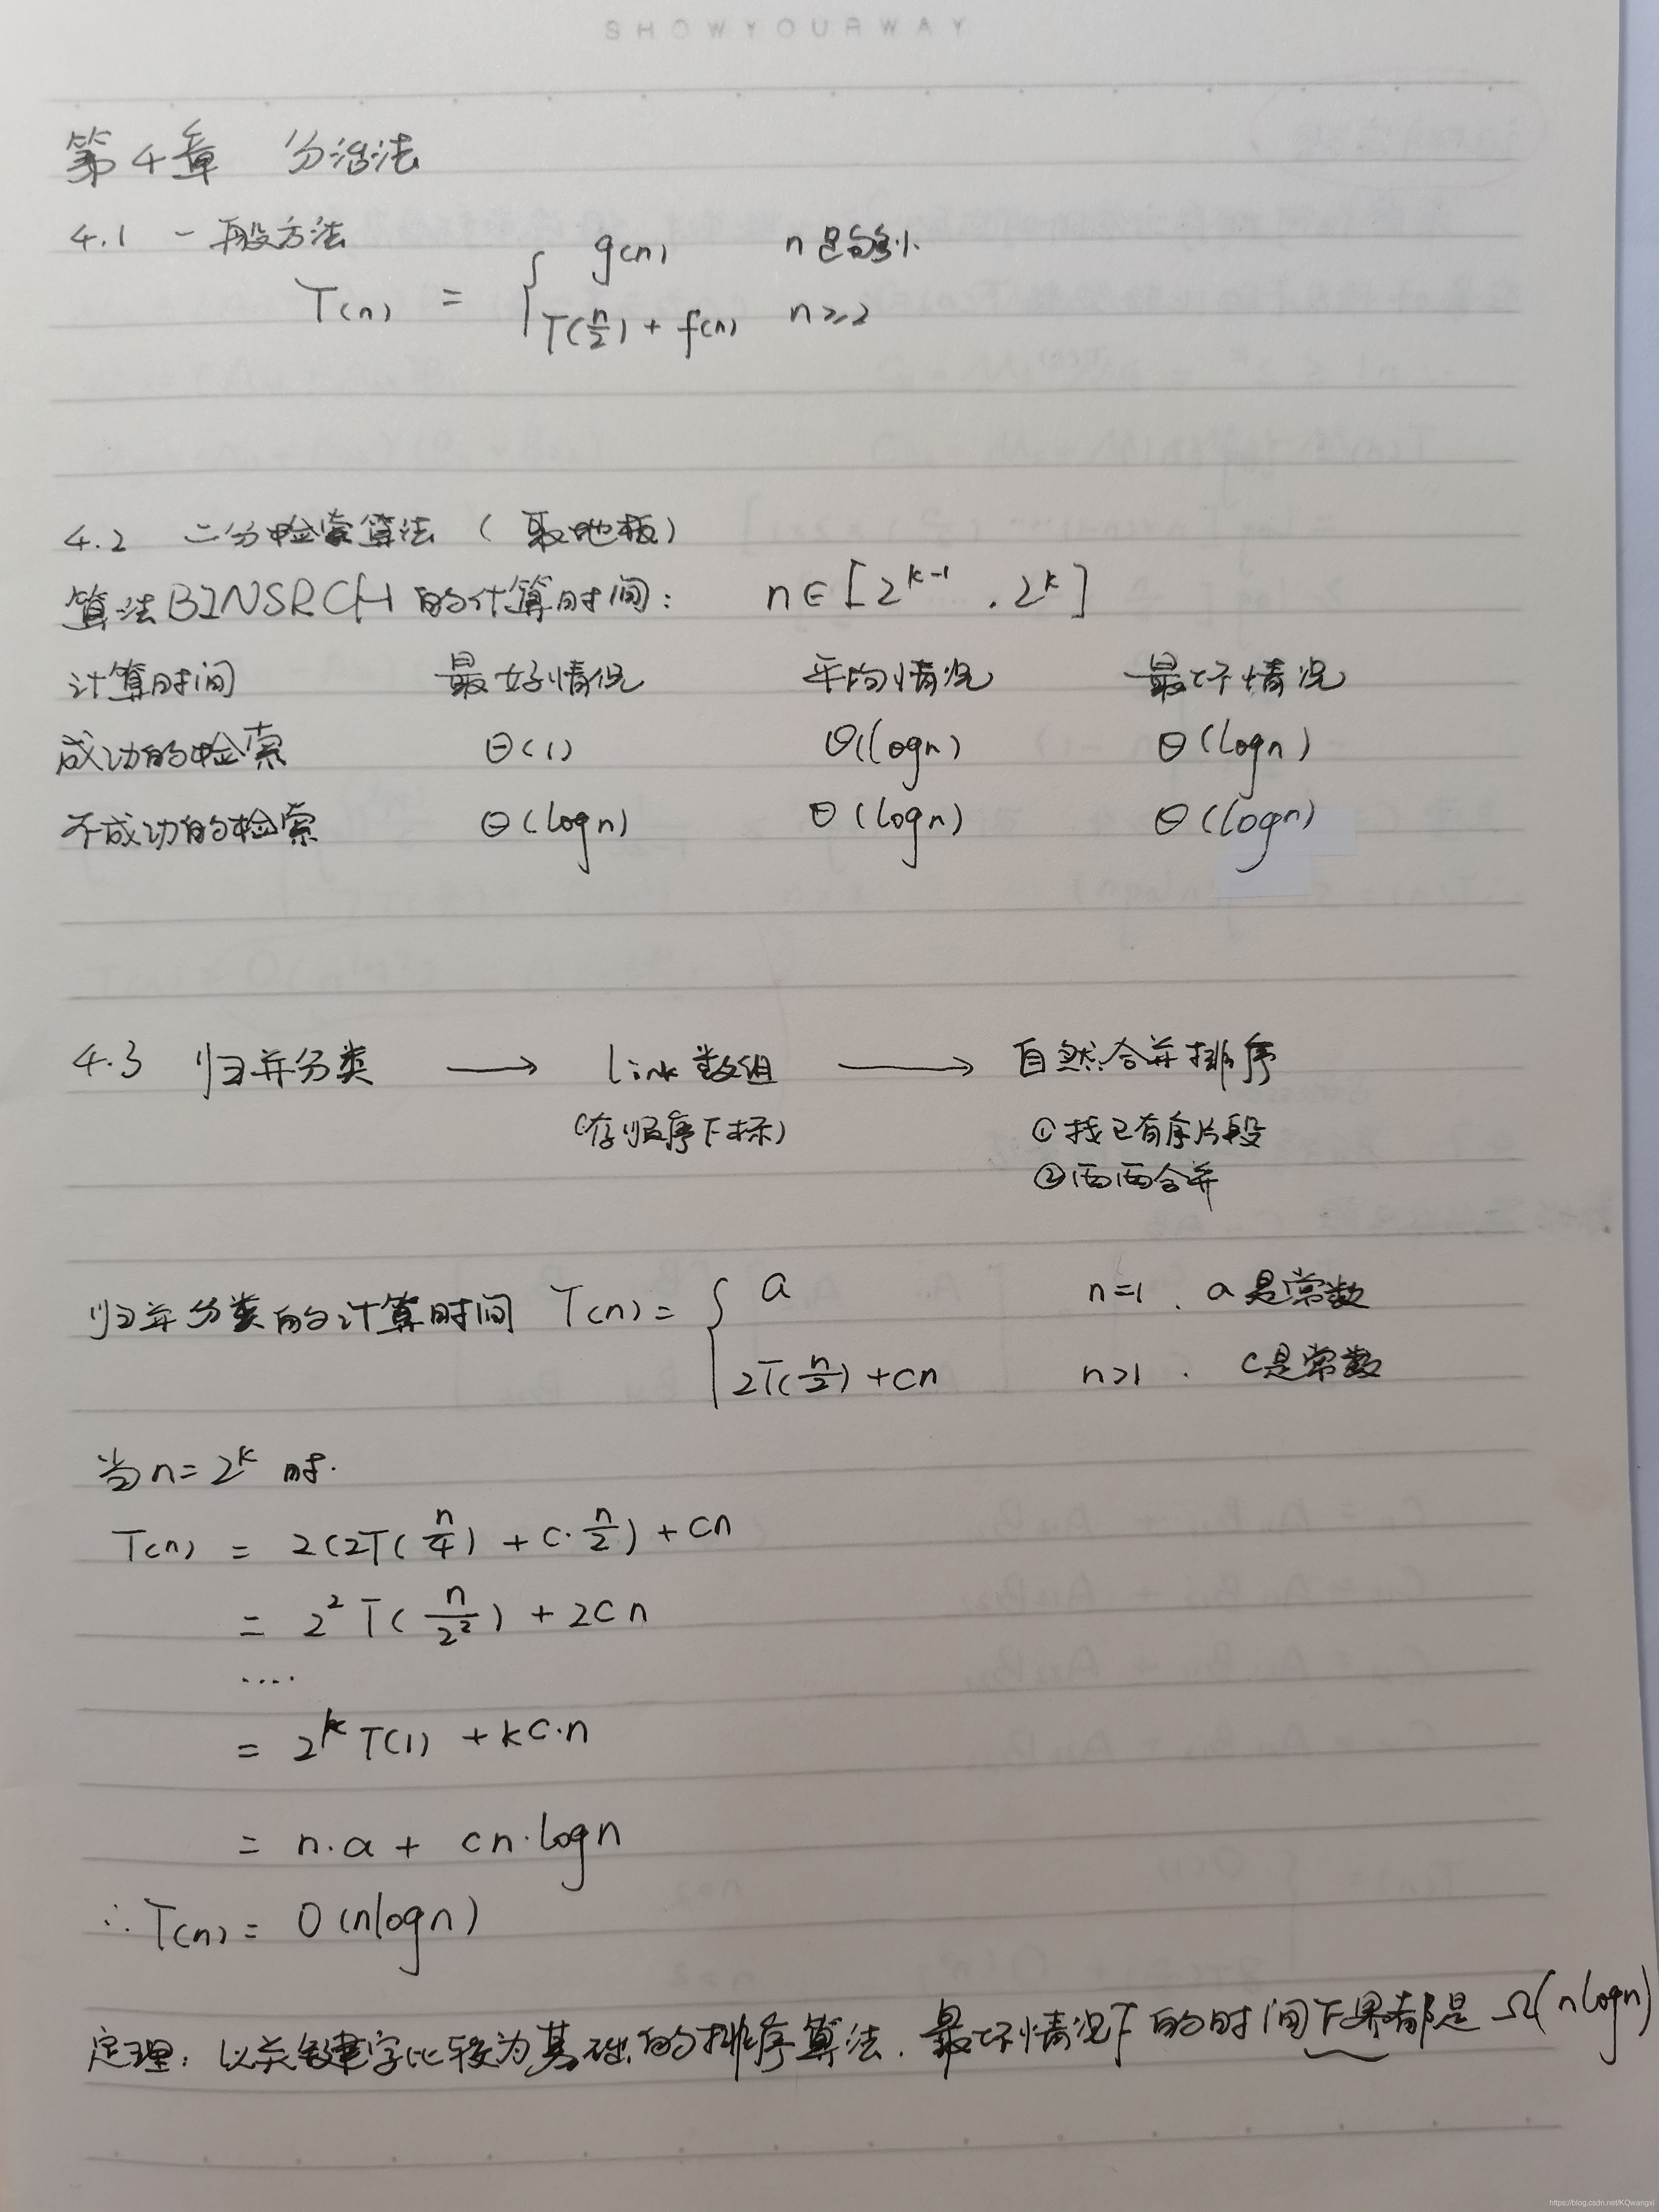 SHOWYOURWAY
第4章 分治法
4.1 一般方法
T(n) = { g(n) n足够小
T(n/2) + f(n) n≥2
4.2 二分检索算法（取地板）
算法BINSRCH的计算时间： n∈[2^(k-1), 2^k]
计算时间 最好情况 平均情况 最坏情况
成功的检索 Θ(1) Θ(logn) Θ(logn)
不成功的检索 Θ(logn) Θ(logn) Θ(logn)
4.3 归并分类 → link数组 → 自然合并排序
(存顺序下标) ①找已有序片段
②两两合并
归并分类的计算时间 T(n) = { a n=1, a是常数
2T(n/2)+cn n>1, c是常数
当n=2^k时.
T(n) = 2(2T(n/4) + c·n/2) + cn
= 2^2 T(n/2^2) + 2cn
....
= 2^k T(1) + kc·n
= n·a + cn·logn
∴ T(n) = O(nlogn)
定理：以关键字比较为基础的排序算法, 最坏情况下的时间下界都是Ω(nlogn)
https://blog.csdn.net/KQwangxi